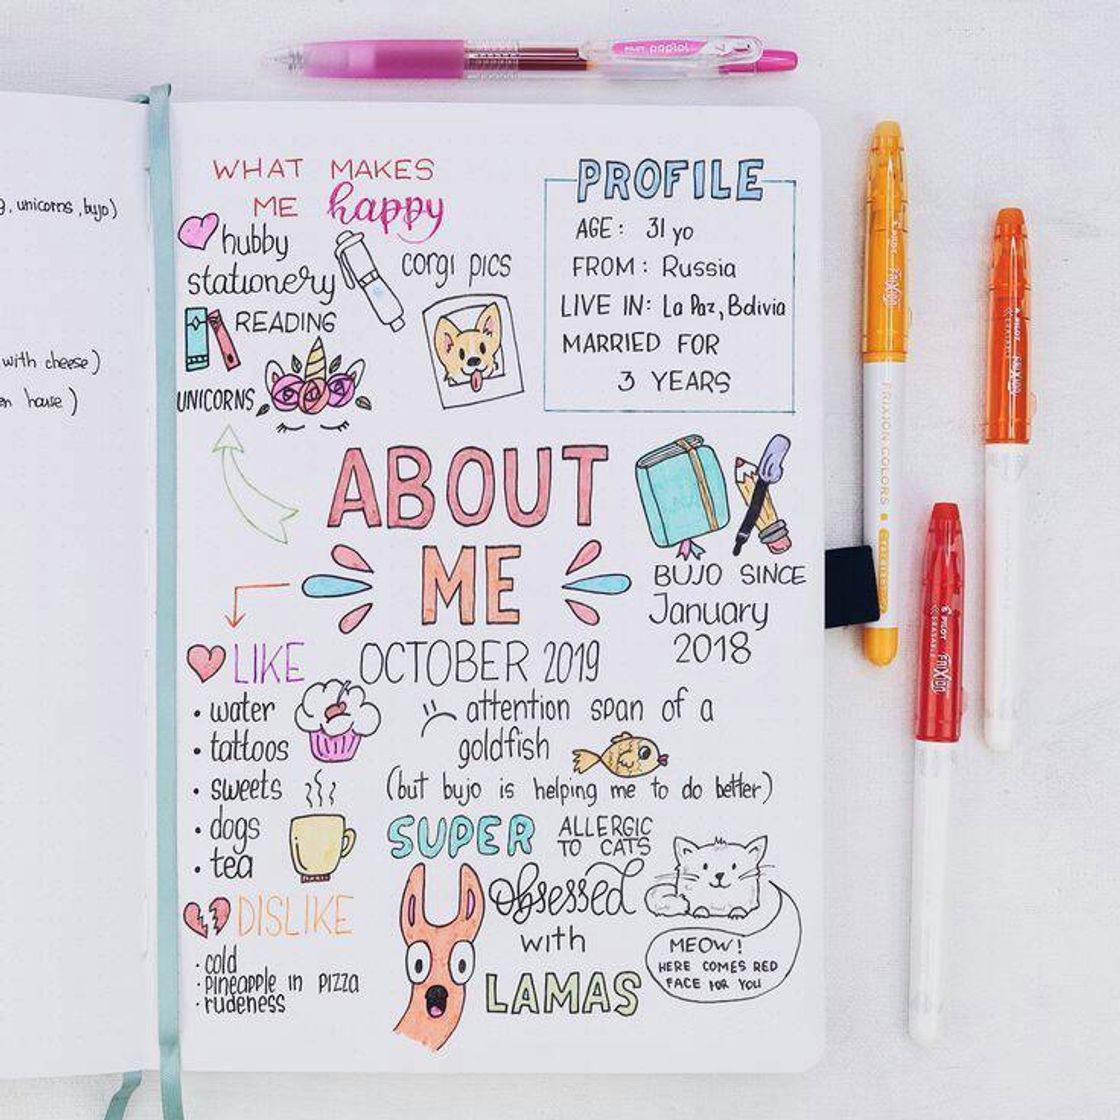 , unicorns, bujo)
with cheese)
en have)
WHAT MAKES
ME happy
hubby
stationery
corgi pics
READING
UNICORNS
PROFILE
AGE: 31 yo
FROM: Russia
LIVE IN: La Paz, Bolivia
MARRIED FOR
3 YEARS
ABOUT
ME
OCTOBER 2019
BUJO SINCE
January
2018
LIKE
• water
• tattoos
• sweets
• dogs
• tea
DISLIKE
• cold
• pineapple in pizza
• rudeness
:( attention span of a
goldfish
(but bujo is helping me to do better)
SUPER ALLERGIC
TO CATS
obsessed
with
LAMAS
MEOW!
HERE COMES RED
FACE FOR YOU
PILOT
FRIXION COLORS
PILOT
ERASABLE
FRIXION
PILOT
ERASABLE
FRIXION